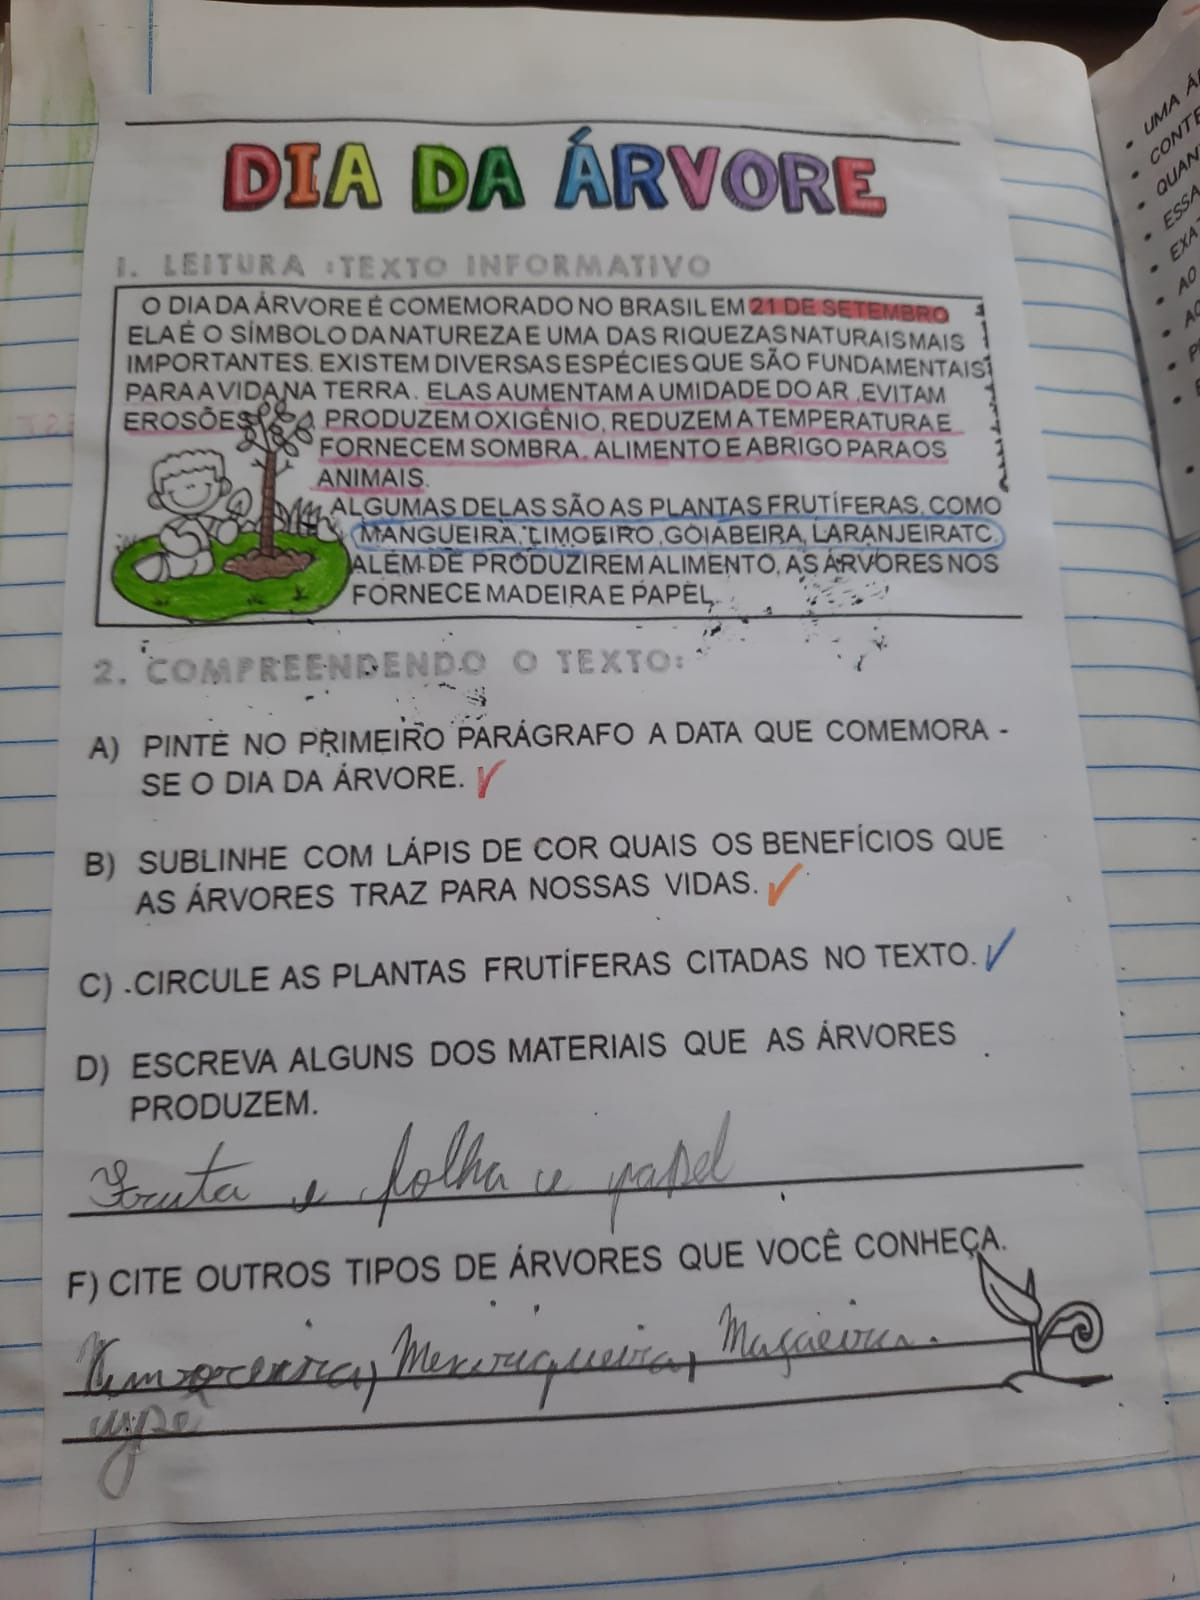 DIA DA ÁRVORE
1. LEITURA :TEXTO INFORMATIVO
O DIA DA ÁRVORE É COMEMORADO NO BRASIL EM 21 DE SETEMBRO
ELA É O SÍMBOLO DA NATUREZA E UMA DAS RIQUEZAS NATURAIS MAIS
IMPORTANTES. EXISTEM DIVERSAS ESPÉCIES QUE SÃO FUNDAMENTAIS
PARA A VIDA NA TERRA. ELAS AUMENTAM A UMIDADE DO AR ,EVITAM
EROSÕES, PRODUZEM OXIGÊNIO, REDUZEM A TEMPERATURA E
FORNECEM SOMBRA, ALIMENTO E ABRIGO PARA OS
ANIMAIS.
ALGUMAS DELAS SÃO AS PLANTAS FRUTÍFERAS, COMO
MANGUEIRA, LIMOEIRO ,GOIABEIRA, LARANJEIRATC.
ALÉM DE PRODUZIREM ALIMENTO, AS ÁRVORES NOS
FORNECE MADEIRA E PAPEL.
2. COMPREENDENDO O TEXTO:
A) PINTE NO PRIMEIRO PARÁGRAFO A DATA QUE COMEMORA -
SE O DIA DA ÁRVORE.
B) SUBLINHE COM LÁPIS DE COR QUAIS OS BENEFÍCIOS QUE
AS ÁRVORES TRAZ PARA NOSSAS VIDAS.
C) .CIRCULE AS PLANTAS FRUTÍFERAS CITADAS NO TEXTO.
D) ESCREVA ALGUNS DOS MATERIAIS QUE AS ÁRVORES
PRODUZEM.
Fruta e folha e papel
F) CITE OUTROS TIPOS DE ÁRVORES QUE VOCÊ CONHEÇA.
Maçieira.
ype
UMA
ESSA
AO